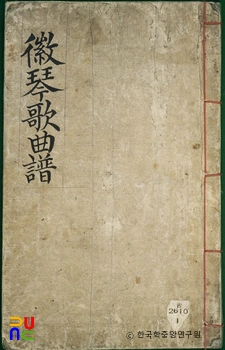 徽琴歌曲譜
2610
1
© 한국학중앙연구원